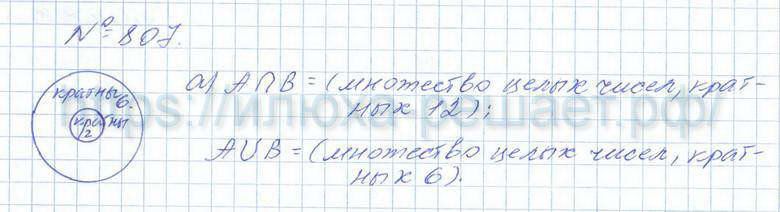 № 807.
кратны 6.
кратны
12
а) A∩B = (множество целых чисел, крат-
ных 12);
A∪B = (множество целых чисел, крат-
ных 6).
https://илюха-решает.рф/